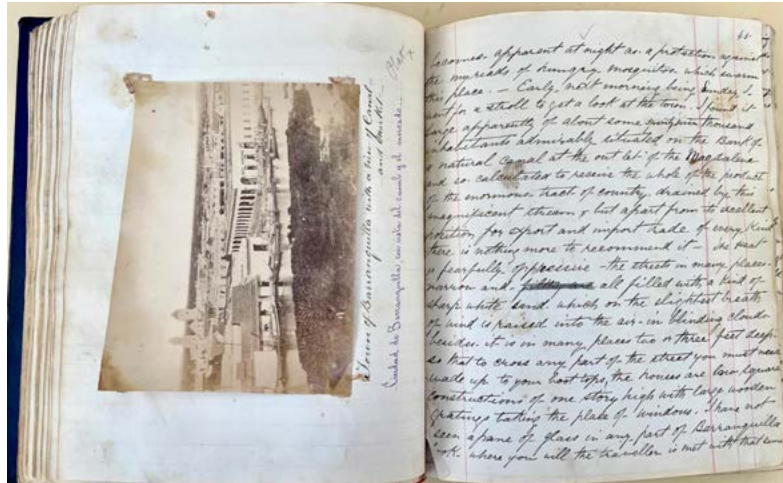 Plat
x
Town of Barranquilla with a view of Canal -
and Market -
Ciudad de Barranquilla, con vista del canal y el mercado.
becomes apparent at night as a protection against
the myreads of hungry mosquitos which swarm
this place. - Early next morning being Sunday I
went for a stroll to get a look at the town. I found it
large apparently of about some thousand
inhabitants admirably situated on the Bank of
natural Canal at the out let of the Magdalena
and so calculated to receive the whole of the product
of the enormous tract of country, drained by this
magnificent stream & but apart from its excellent
position for export and import trade of every kind
there is nothing more to recommend it - The heat
is fearfully oppressive - the streets in many places
narrow and all filled with a kind of
sharp white sand which on the slightest breath
of wind is raised into the air - in blinding clouds
besides it is in many places two or three feet deep
so that to cross any part of the street you must
wade up to your boot tops, the houses are low square
constructions of one story high with large wooden
gratings taking the place of windows. I have not
seen a pane of glass in any part of Barranquilla
look where you will the traveller is met with that